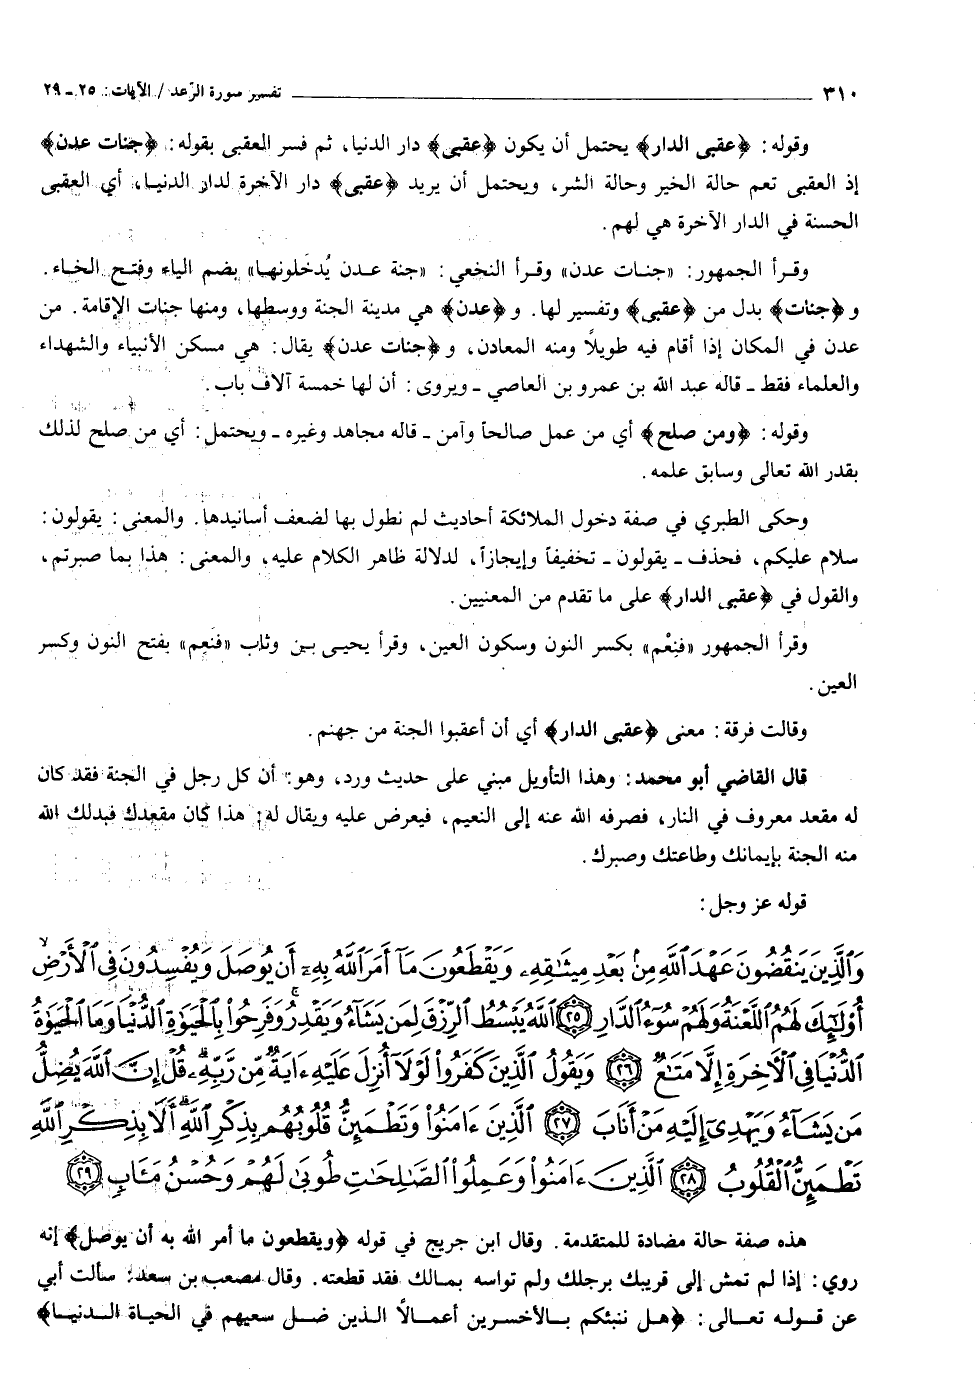 ٣١٠ ــــــــــــــــــــ تفسير سورة الرّعد / الآيات: ٢٥ ـ ٢٩
وقوله: ﴿عقبى الدار﴾ يحتمل أن يكون ﴿عقبى﴾ دار الدنيا، ثم فسر العقبى بقوله: ﴿جنات عدن﴾
إذ العقبى تعم حالة الخير وحالة الشر، ويحتمل أن يريد ﴿عقبى﴾ دار الآخرة لدار الدنيا، أي العقبى
الحسنة في الدار الآخرة هي لهم.
وقرأ الجمهور: «جنات عدن» وقرأ النخعي: «جنة عدن يُدخَلونها» بضم الياء وفتح الخاء.
و﴿جنات﴾ بدل من ﴿عقبى﴾ وتفسير لها. و﴿عدن﴾ هي مدينة الجنة ووسطها، ومنها جنات الإقامة. من
عدن في المكان إذا أقام فيه طويلاً ومنه المعادن، و﴿جنات عدن﴾ يقال: هي مسكن الأنبياء والشهداء
والعلماء فقط ـ قاله عبد الله بن عمرو بن العاصي ـ ويروى: أن لها خمسة آلاف باب.
وقوله: ﴿ومن صلح﴾ أي من عمل صالحاً وآمن ـ قاله مجاهد وغيره ـ ويحتمل: أي من صلح لذلك
بقدر الله تعالى وسابق علمه.
وحكى الطبري في صفة دخول الملائكة أحاديث لم نطول بها لضعف أسانيدها. والمعنى: يقولون:
سلام عليكم، فحذف ـ يقولون ـ تخفيفاً وإيجازاً، لدلالة ظاهر الكلام عليه، والمعنى: هذا بما صبرتم،
والقول في ﴿عقبى الدار﴾ على ما تقدم من المعنيين.
وقرأ الجمهور «فنِعْم» بكسر النون وسكون العين، وقرأ يحيى بن وثاب «فنَعِم» بفتح النون وكسر
العين.
وقالت فرقة: معنى ﴿عقبى الدار﴾ أي أن أعقبوا الجنة من جهنم.
قال القاضي أبو محمد: وهذا التأويل مبني على حديث ورد، وهو: أن كل رجل في الجنة فقد كان
له مقعد معروف في النار، فصرفه الله عنه إلى النعيم، فيعرض عليه ويقال له: هذا كان مقعدك فبدلك الله
منه الجنة بإيمانك وطاعتك وصبرك.
قوله عز وجل:
وَالَّذِينَ يَنقُضُونَ عَهْدَ اللَّهِ مِنۢ بَعْدِ مِيثَٰقِهِۦ وَيَقْطَعُونَ مَآ أَمَرَ اللَّهُ بِهِۦٓ أَن يُوصَلَ وَيُفْسِدُونَ فِي الْأَرْضِ ۙ
أُوْلَٰٓئِكَ لَهُمُ اللَّعْنَةُ وَلَهُمْ سُوٓءُ الدَّارِ ۝٢٥ اللَّهُ يَبْسُطُ الرِّزْقَ لِمَن يَشَآءُ وَيَقْدِرُ ۚ وَفَرِحُوا۟ بِالْحَيَوٰةِ الدُّنْيَا وَمَا الْحَيَوٰةُ
الدُّنْيَا فِي الْءَاخِرَةِ إِلَّا مَتَٰعٌ ۝٢٦ وَيَقُولُ الَّذِينَ كَفَرُوا۟ لَوْلَآ أُنزِلَ عَلَيْهِ ءَايَةٌ مِّن رَّبِّهِۦ ۗ قُلْ إِنَّ اللَّهَ يُضِلُّ
مَن يَشَآءُ وَيَهْدِىٓ إِلَيْهِ مَنْ أَنَابَ ۝٢٧ الَّذِينَ ءَامَنُوا۟ وَتَطْمَئِنُّ قُلُوبُهُم بِذِكْرِ اللَّهِ ۗ أَلَا بِذِكْرِ اللَّهِ
تَطْمَئِنُّ الْقُلُوبُ ۝٢٨ الَّذِينَ ءَامَنُوا۟ وَعَمِلُوا۟ الصَّٰلِحَٰتِ طُوبَىٰ لَهُمْ وَحُسْنُ مَـَٔابٍ ۝٢٩
هذه صفة حالة مضادة للمتقدمة. وقال ابن جريج في قوله ﴿ويقطعون ما أمر الله به أن يوصل﴾ إنه
روي: إذا لم تمش إلى قريبك برجلك ولم تواسه بمالك فقد قطعته. وقال مصعب بن سعد: سألت أبي
عن قوله تعالى: ﴿هل ننبئكم بالأخسرين أعمالاً الذين ضل سعيهم في الحياة الدنيا﴾